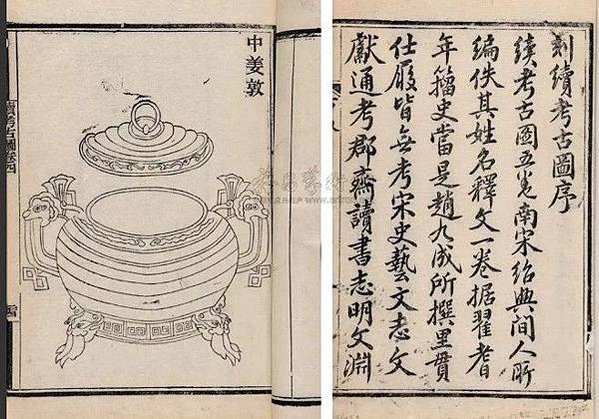 刻續考古圖序
續考古圖五卷南宋紹興間人所
編佚其姓名釋文一卷據翟耆
年籀史當是趙九成所撰里貫
仕履皆無考宋史藝文志文
獻通考郡齋讀書志明文淵
中姜敦
續考古圖卷四